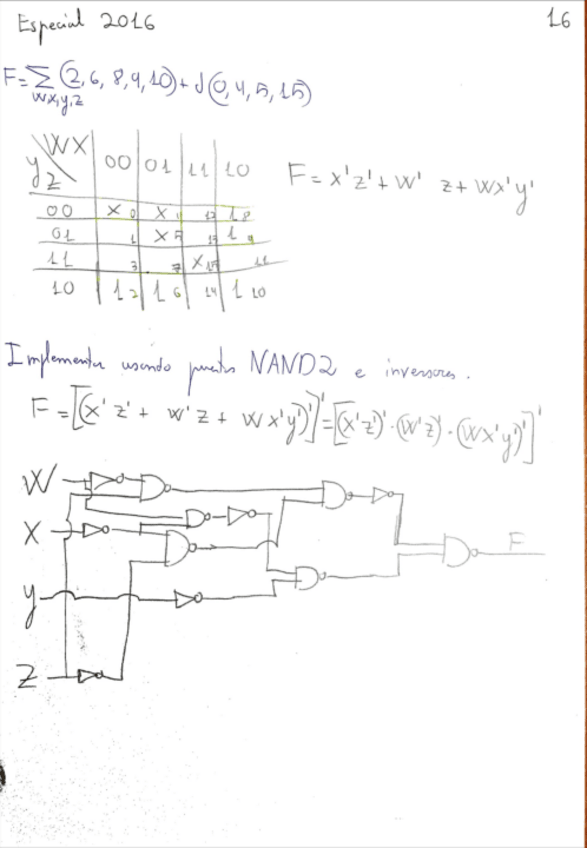 Especial 2016 16
F=∑(2,6,8,9,10)+d(0,4,5,15)
W,x,y,z
WX
yz 00 01 11 10
00 X 0 X 4 12 1 8
01 1 X 5 13 1 9
11 3 7 X 15 11
10 1 2 1 6 14 1 10
F = x'z' + w' z + wx'y'
Implementar usando puertas NAND2 e inversores.
F = [(x'z' + w'z + wx'y')']' = [(x'z')'·(w'z)'·(wx'y')']'
W
X
y
Z
F